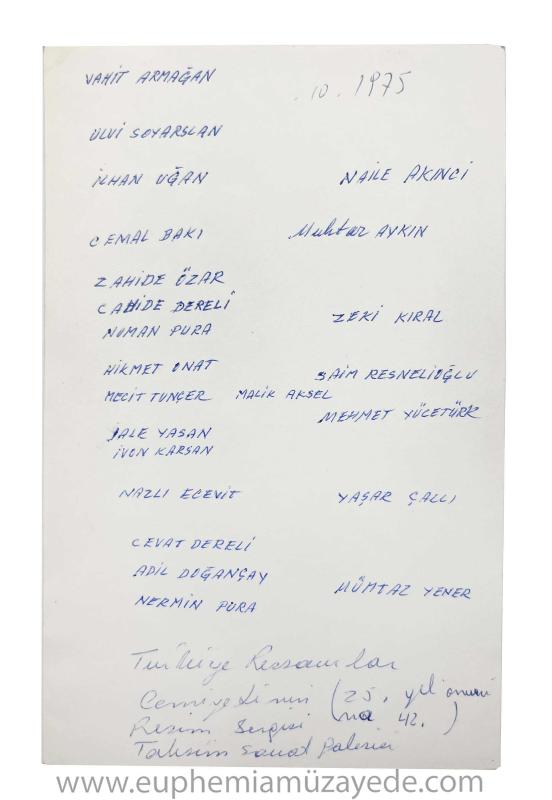 VAHİT ARMAĞAN
.10.1975
ULVİ SOYARSLAN
İLHAN UĞAN
NAİLE AKINCI
CEMAL BAKI
Muhtar AYKIN
ZAHİDE ÖZAR
CAHİDE DERELİ
ZEKİ KIRAL
NUMAN PURA
HİKMET ONAT
SAİM RESNELİOĞLU
MECİT TUNÇER MALİK AKSEL
MEHMET YÜCETÜRK
JALE YASAN
İVON KARSAN
NAZLI ECEVİT
YAŞAR ÇALLI
CEVAT DERELİ
ADİL DOĞANÇAY
MÜMTAZ YENER
NERMİN PURA
Türkiye Ressamlar
Cemiyetinin (25. yıl onuru
Resim Sergisi na 42. )
Taksim Sanat Galerisi
www.euphemiamüzayede.com